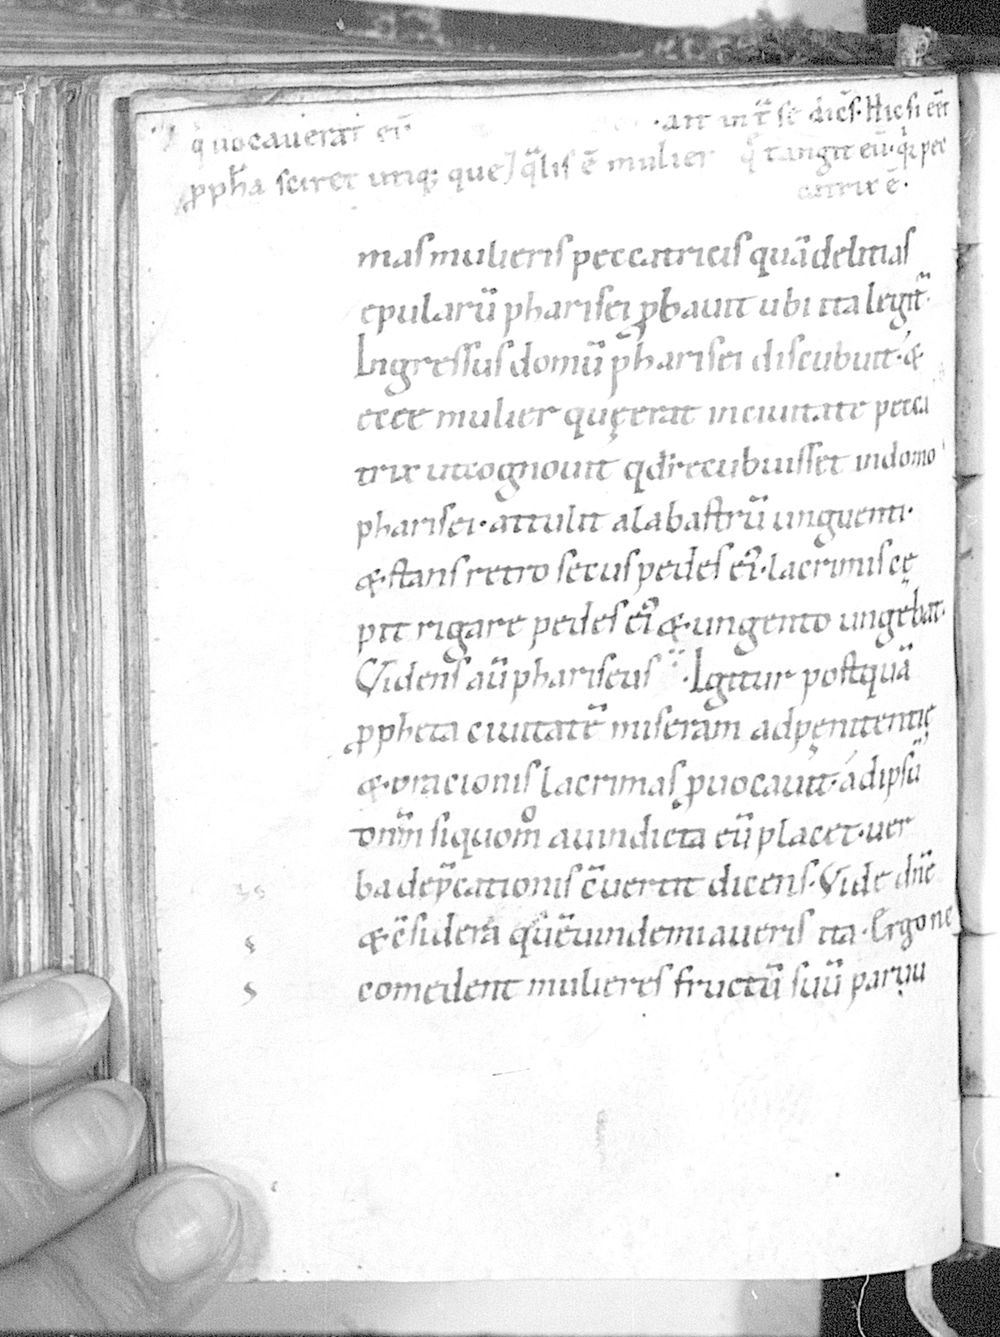 q̇ uocauerat eū· ·ait int̄ se dicēs· Hic si eēt
ꝓph̄a sciret utiq; que ⁊ q̄lis ē mulier q̄ tangit eū· q̇ pec
catrix ē·
mas mulieris peccatricis quā delitias
epularū pharisei ꝓbauit ubi ita legit̄·
Ingressus domū pharisei discubuit· &
ecce mulier quę erat in ciuitate pecca
trix ut cognouit qđ recubuisset in domo
pharisei· attulit alabastrū unguenti·
& stans retro secus pedes ei᷒· lacrimis cę
pit rigare pedes ei᷒ & ungento ungēbat·
Videns aū phariseus ·Igitur postquā
ꝓpheta ciuitatē miseram ad pęnitentię
& oracionis lacrimas ꝓuocauit· ad ipsū
dn̄m siquom̊ a uindicta eū placet· uer
ba dep̄cationis c̄uertit dicens· Vide dn̄e
& c̄sidera quē uindemiaueris ita· Ergo ne
comedent mulieres fructū suū paruu